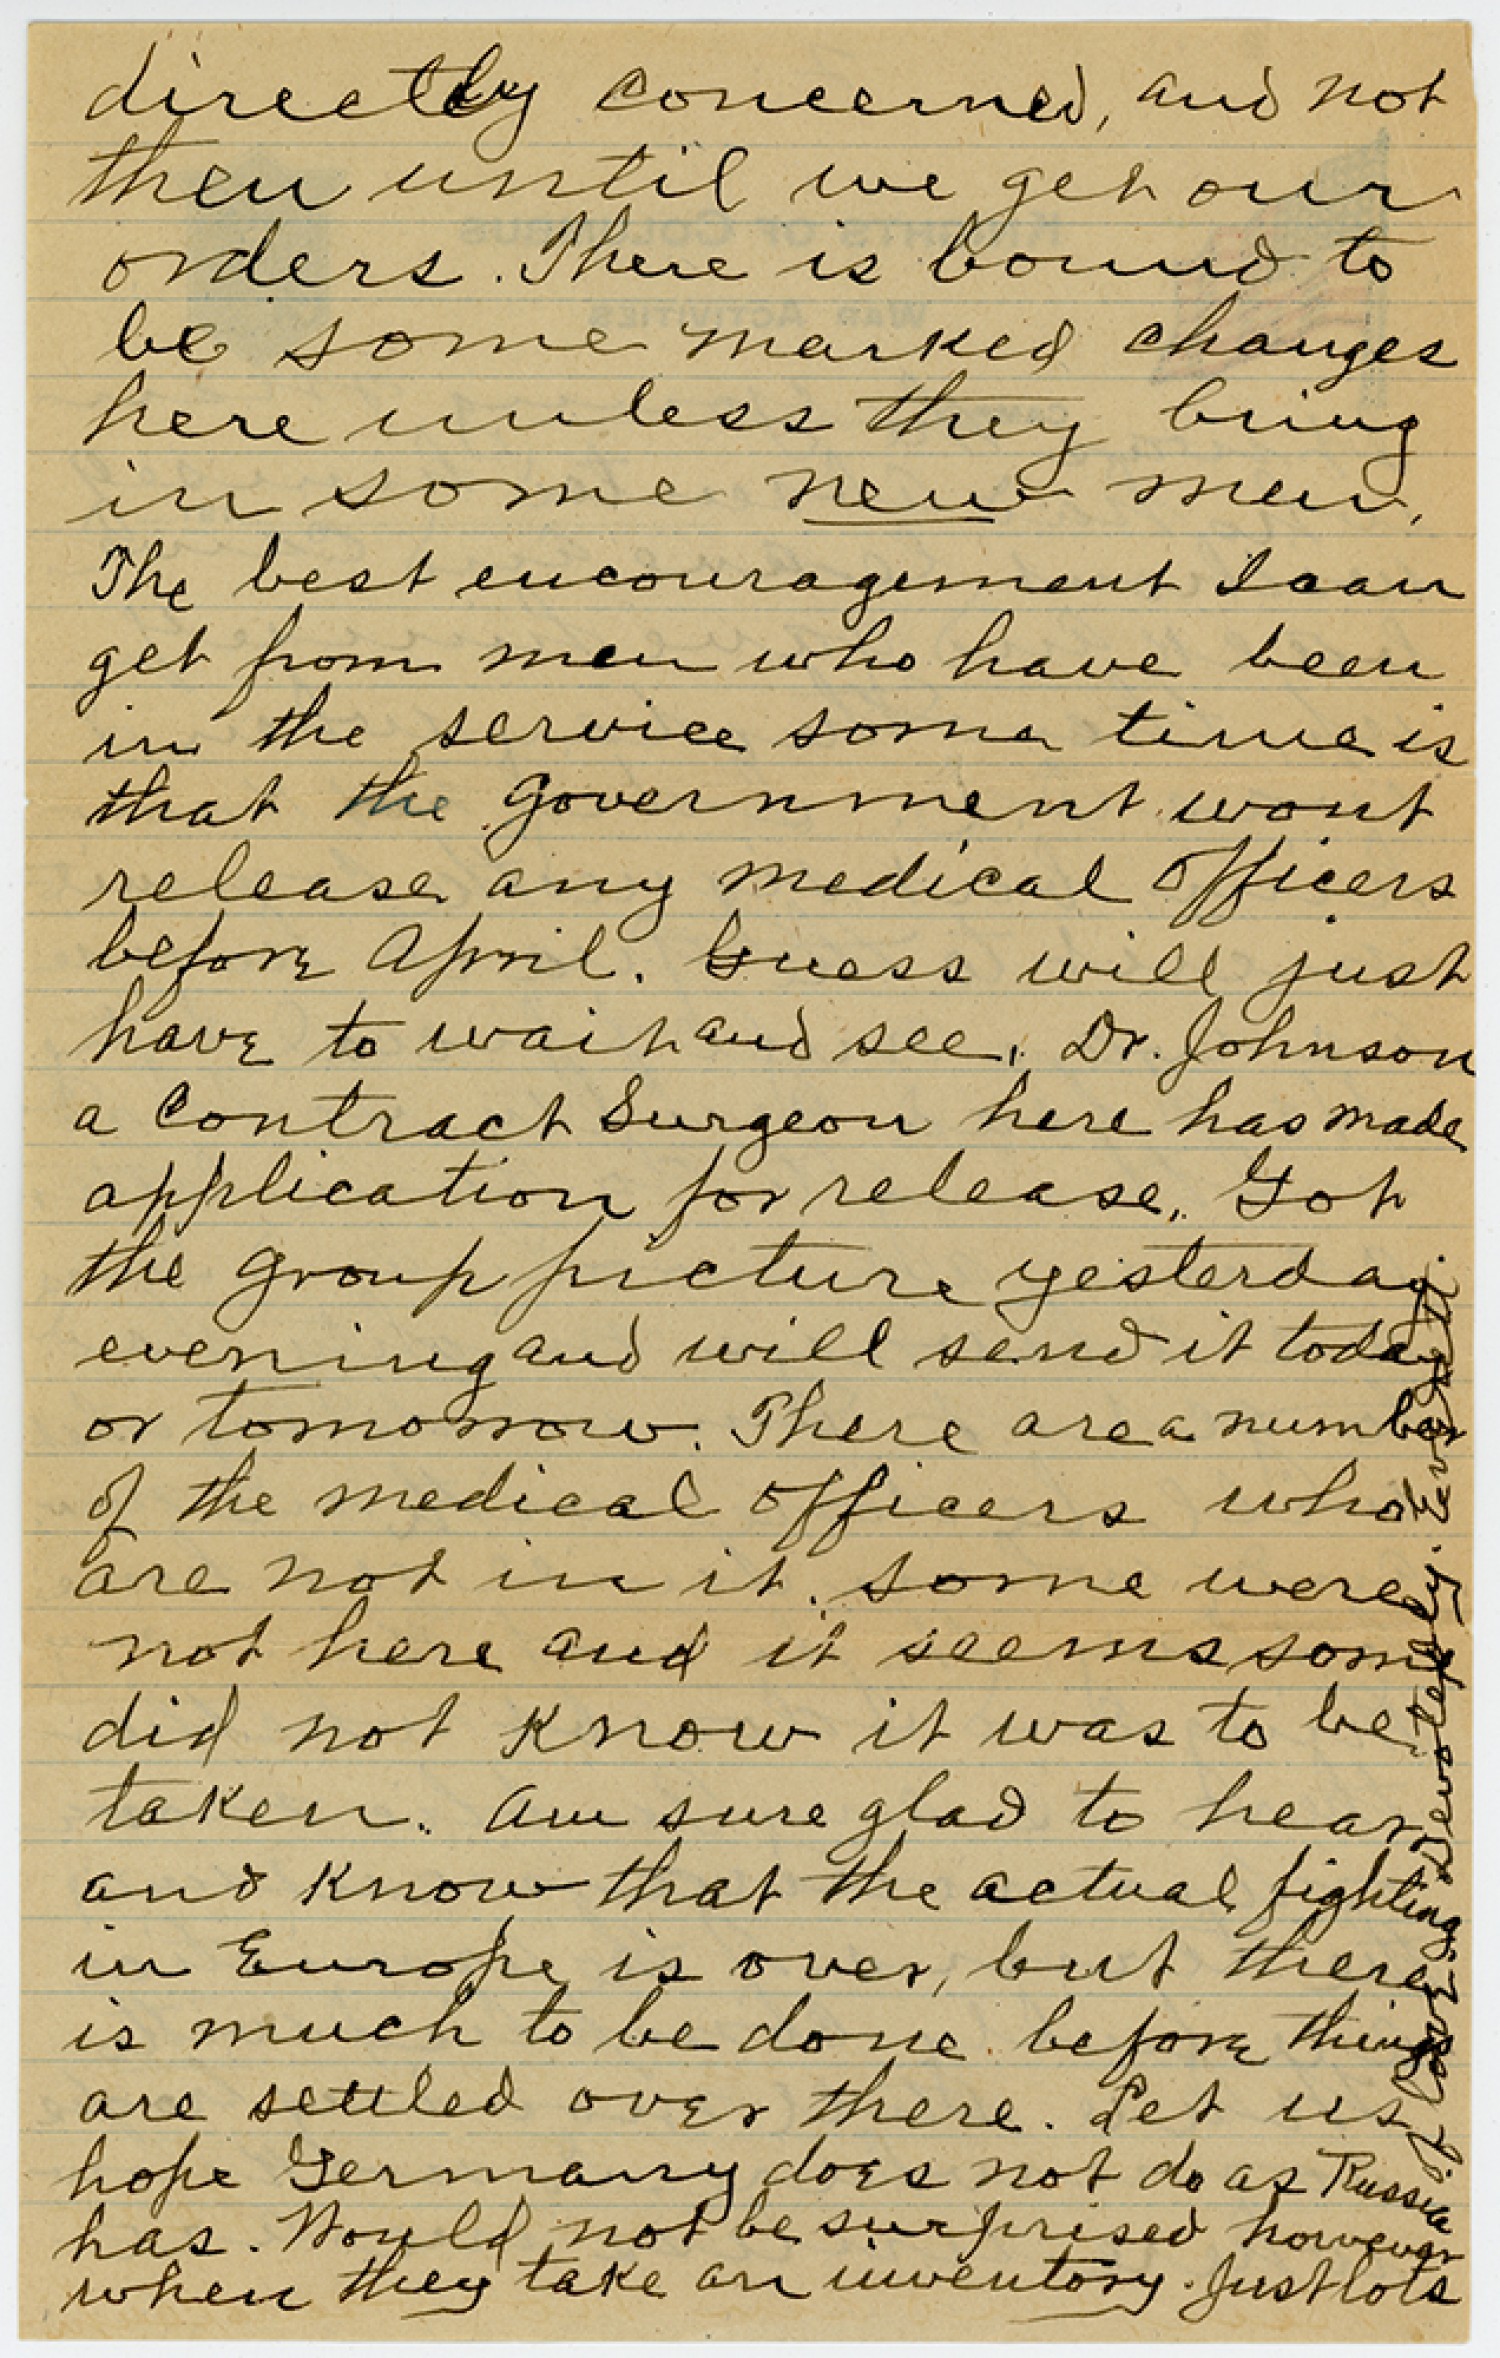 directly concerned, and not
then until we get our
orders. There is bound to
be some marked changes
here unless they bring
in some new men.
The best encouragement I can
get from men who have been
in the service some time is
that the government wont
release any medical officers
before April. Guess will just
have to wait and see. Dr. Johnson
a Contract Surgeon here has made
application for release. Got
the group picture yesterday
evening and will send it today
or tomorrow. There are a number
of the medical officers who
are not in it. some were
not here and it seems some
did not know it was to be
taken. Am sure glad to hear
and know that the actual fighting
in Europe is over, but there
is much to be done before things
are settled over there. Let us
hope Germany does not do as Russia
has. Would not be surprised however
when they take an inventory. Just lots
of love. Devotedly. Everett.
KNIGHTS OF COLUMBUS
WAR ACTIVITIES